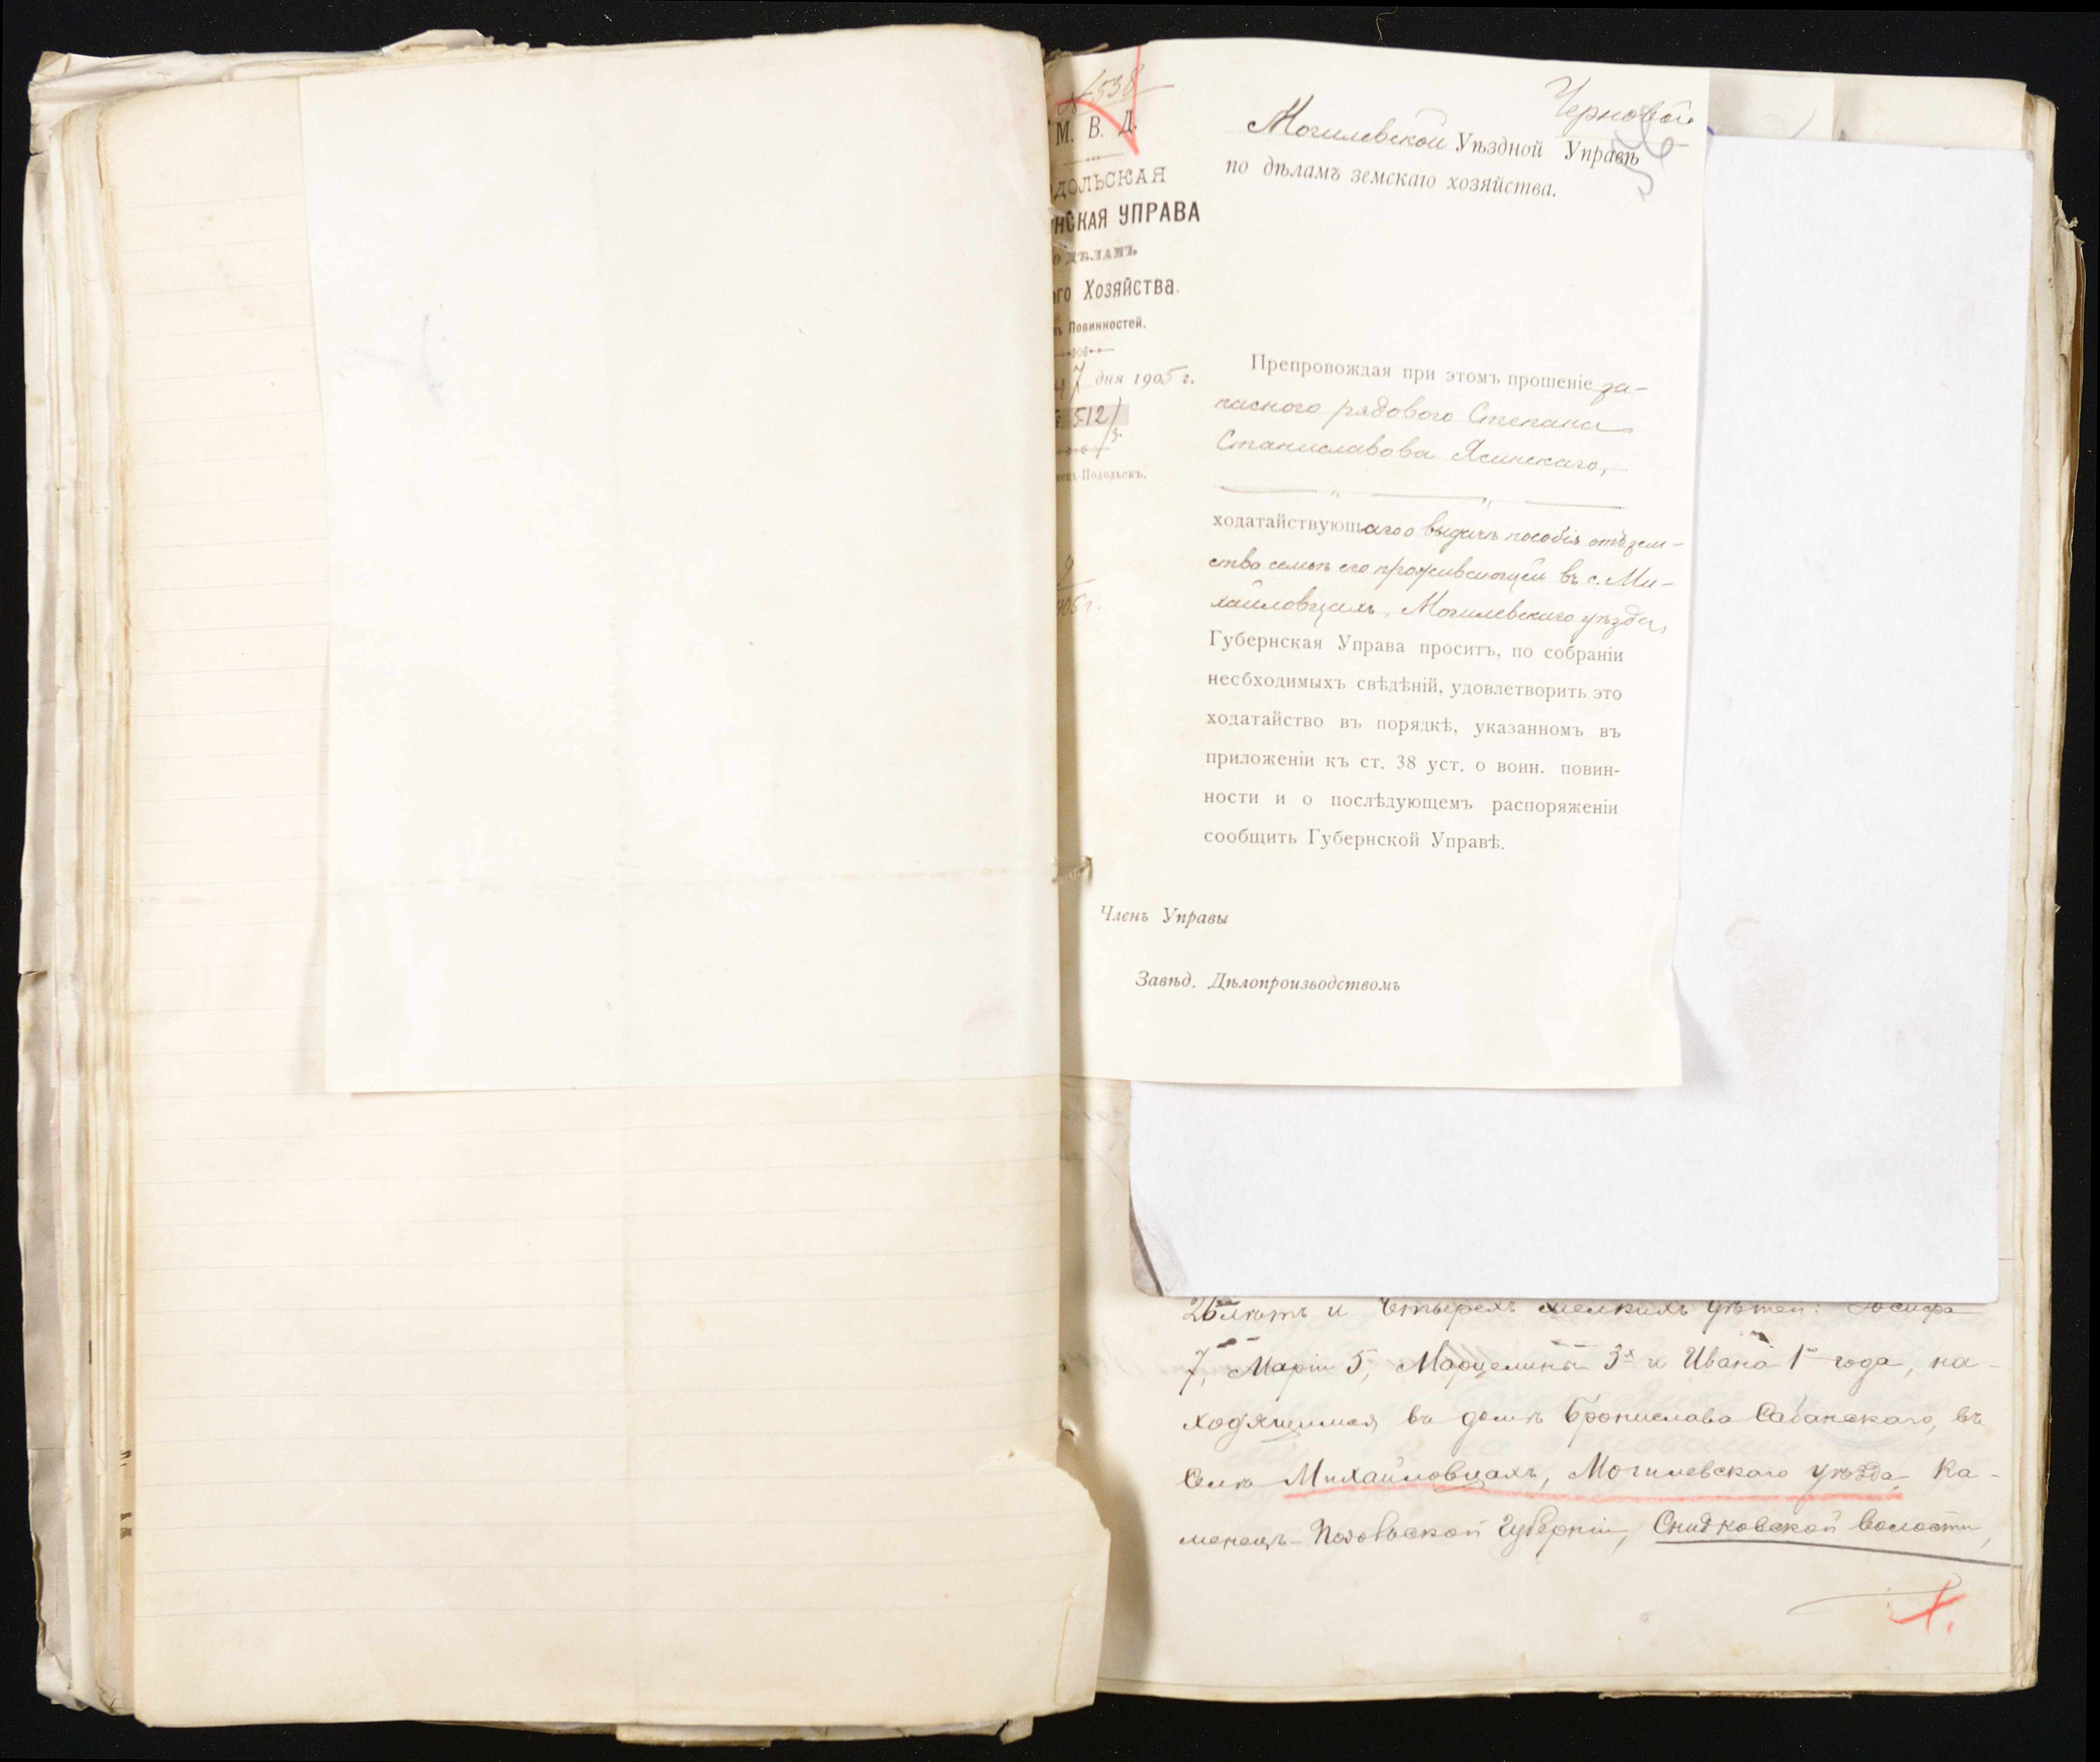 № 538
М. В. Д.
ДОЛЬСКАЯ
НСКАЯ УПРАВА
о дѣламъ
аго Хозяйства.
Повинностей.
7 дня 1905 г.
512/3.
нецъ-Подольскъ.
9
905 г.
Черновой
Могилевской Уѣздной Управѣ
по дѣламъ земскаго хозяйства.
Препровождая при этомъ прошеніе за-
паснаго рядового Степана
Станиславова Ясинскаго,
ходатайствующаго о выдачѣ пособія отъ зем-
ства семьѣ его проживающей въ с. Ми-
хайловцахъ, Могилевскаго уѣзда,
Губернская Управа проситъ, по собраніи
несбходимыхъ свѣдѣній, удовлетворить это
ходатайство въ порядкѣ, указанномъ въ
приложеніи къ ст. 38 уст. о воин. повин-
ности и о послѣдующемъ распоряженіи
сообщить Губернской Управѣ.
Членъ Управы
Завѣд. Дѣлопроизводствомъ
26 лѣтъ и четырехъ мелкихъ дѣтей: Іосифа
7, Маріи 5, Марцелины 3х и Ивана 1 года, на-
ходящимся въ домѣ Бронислава Сабанскаго, въ
Селѣ Михайловцахъ, Могилевскаго уѣзда, Ка-
менецъ-Подольской губерніи, Снидковской волости,